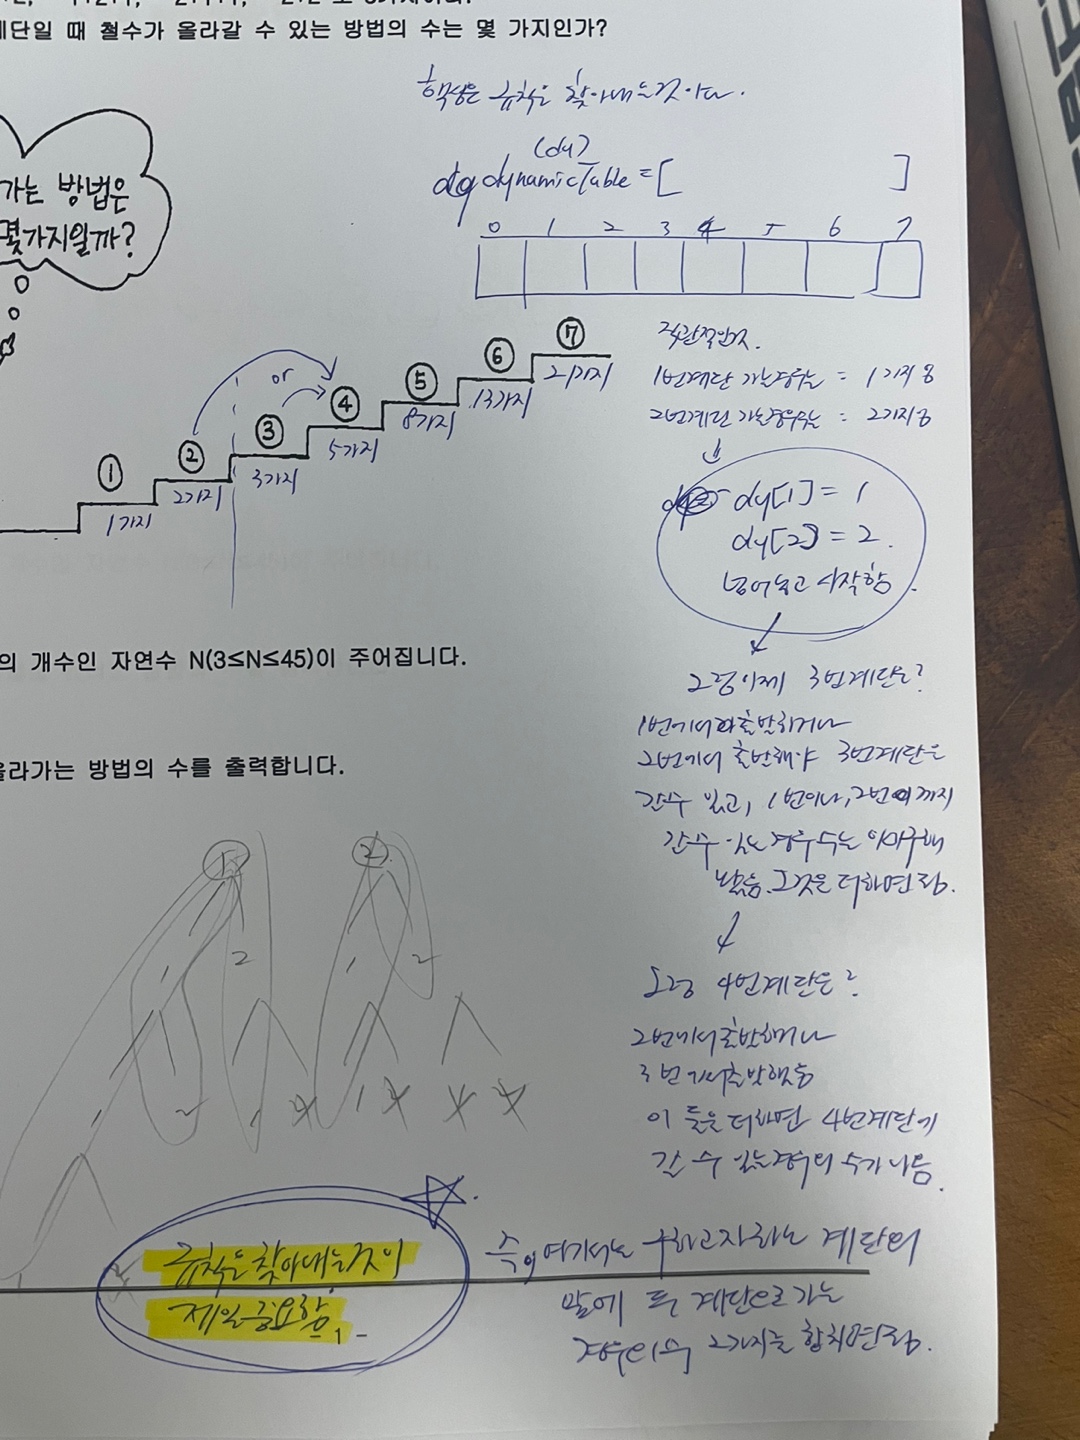 계단일 때 철수가 올라갈 수 있는 방법의 수는 몇 가지인가?
핵심은 규칙을 찾아내는것이다.
가는 방법은
몇가지일까?
(dy)
dynamicTable = [ ]
0 1 2 3 4 5 6 7
직관적인것.
1번계단 가는경우는 = 1가지 용
2번계단 가는경우는 = 2가지
⑦
21가지
⑥
13가지
⑤
8가지
or
④
5가지
③
3가지
②
2가지
①
1가지
dy[1] = 1
dy[2] = 2.
넣어놓고 시작함.
의 개수인 자연수 N(3≤N≤45)이 주어집니다.
그럼이제 3번계단은?
1번에서 출발하거나
2번에서 출발해야 3번계단은
갈수 있고, 1번이나, 2번까지
갈수 있는 경우수는 이미구해
놨음. 그것을 더하면 됨.
올라가는 방법의 수를 출력합니다.
그럼 4번계단은?
2번에서출발하거나
3번에서출발했음
이 둘을 더하면 4번계단에
갈 수 있는경우의 수가 나옴.
1 2
1 2 1 2
1 2 1 1
규칙을찾아내는것이
제일중요함.
즉, 여기서는 구하고자하는 계단의
앞에 두 계단으로 가는
경우의수 2가지를 합치면됨.
- 1 -